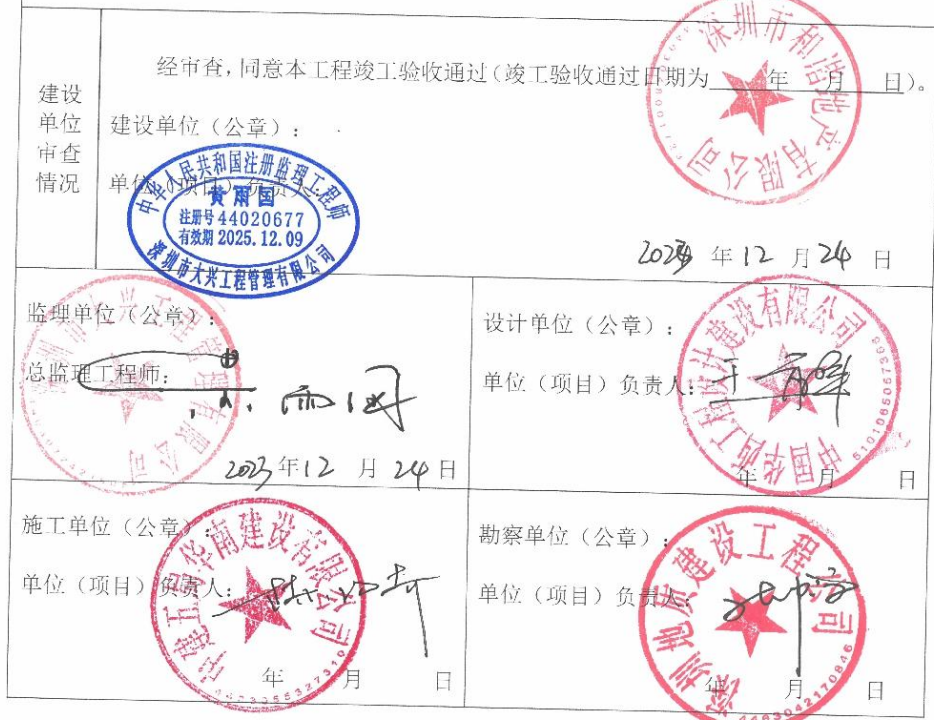 建设
单位
审查
情况
经审查，同意本工程竣工验收通过（竣工验收通过日期为 年 月 日）。
建设单位（公章）：
单位（项目）负责人
深圳市和谐地产有限公司
中华人民共和国注册监理工程师
黄雨国
注册号 44020677
有效期 2025.12.09
深圳市大兴工程管理有限公司
年 12 月 24 日
监理单位（公章）：
总监理工程师：
雨国
2023 年 12 月 24 日
设计单位（公章）：
单位（项目）负责人：
中国华西工程设计建设有限公司
年 月 日
施工单位（公章）：
单位（项目）负责人：
中建五局华南建设有限公司
年 月 日
勘察单位（公章）：
单位（项目）负责人：
深圳地质建设工程公司
年 月 日